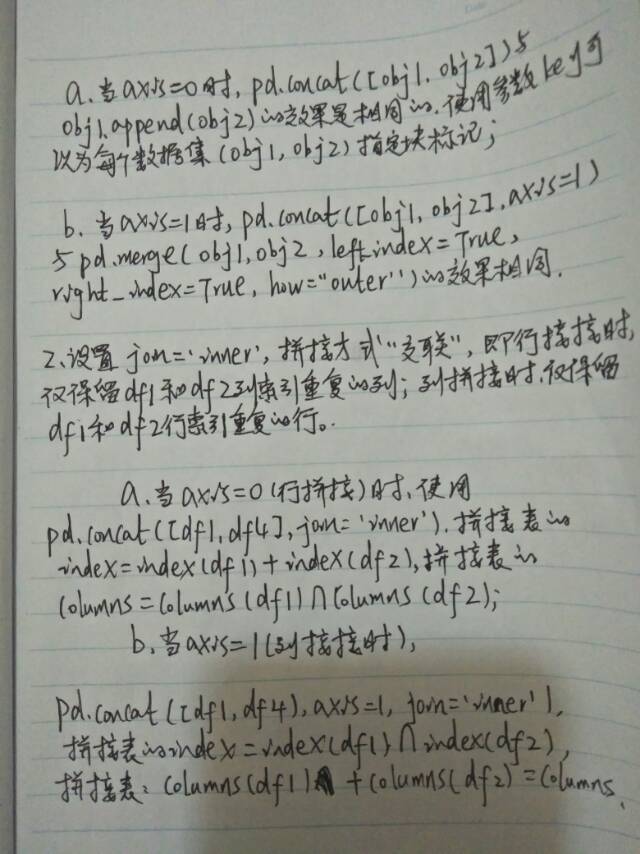 a. 当axis=0时, pd.concat([obj1, obj2])与
obj1.append(obj2)的效果是相同的. 使用参数key可
以为每个数据集(obj1, obj2)指定块标记;
b. 当axis=1时, pd.concat([obj1, obj2], axis=1)
与pd.merge(obj1, obj2, left_index=True,
right_index=True, how="outer")的效果相同.
2. 设置 join='inner', 拼接方式"交联", 即行拼接时,
仅保留df1和df2列索引重复的列; 列拼接时, 仅保留
df1和df2行索引重复的行。
a. 当axis=0(行拼接)时, 使用
pd.concat([df1, df4], join='inner'). 拼接表的
index=index(df1)+index(df2), 拼接表的
Columns=Columns(df1)∩Columns(df2);
b. 当axis=1(列拼接时),
pd.concat([df1, df4), axis=1, join='inner').
拼接表的index=index(df1)∩index(df2),
拼接表: Columns(df1)+Columns(df2)=Columns.